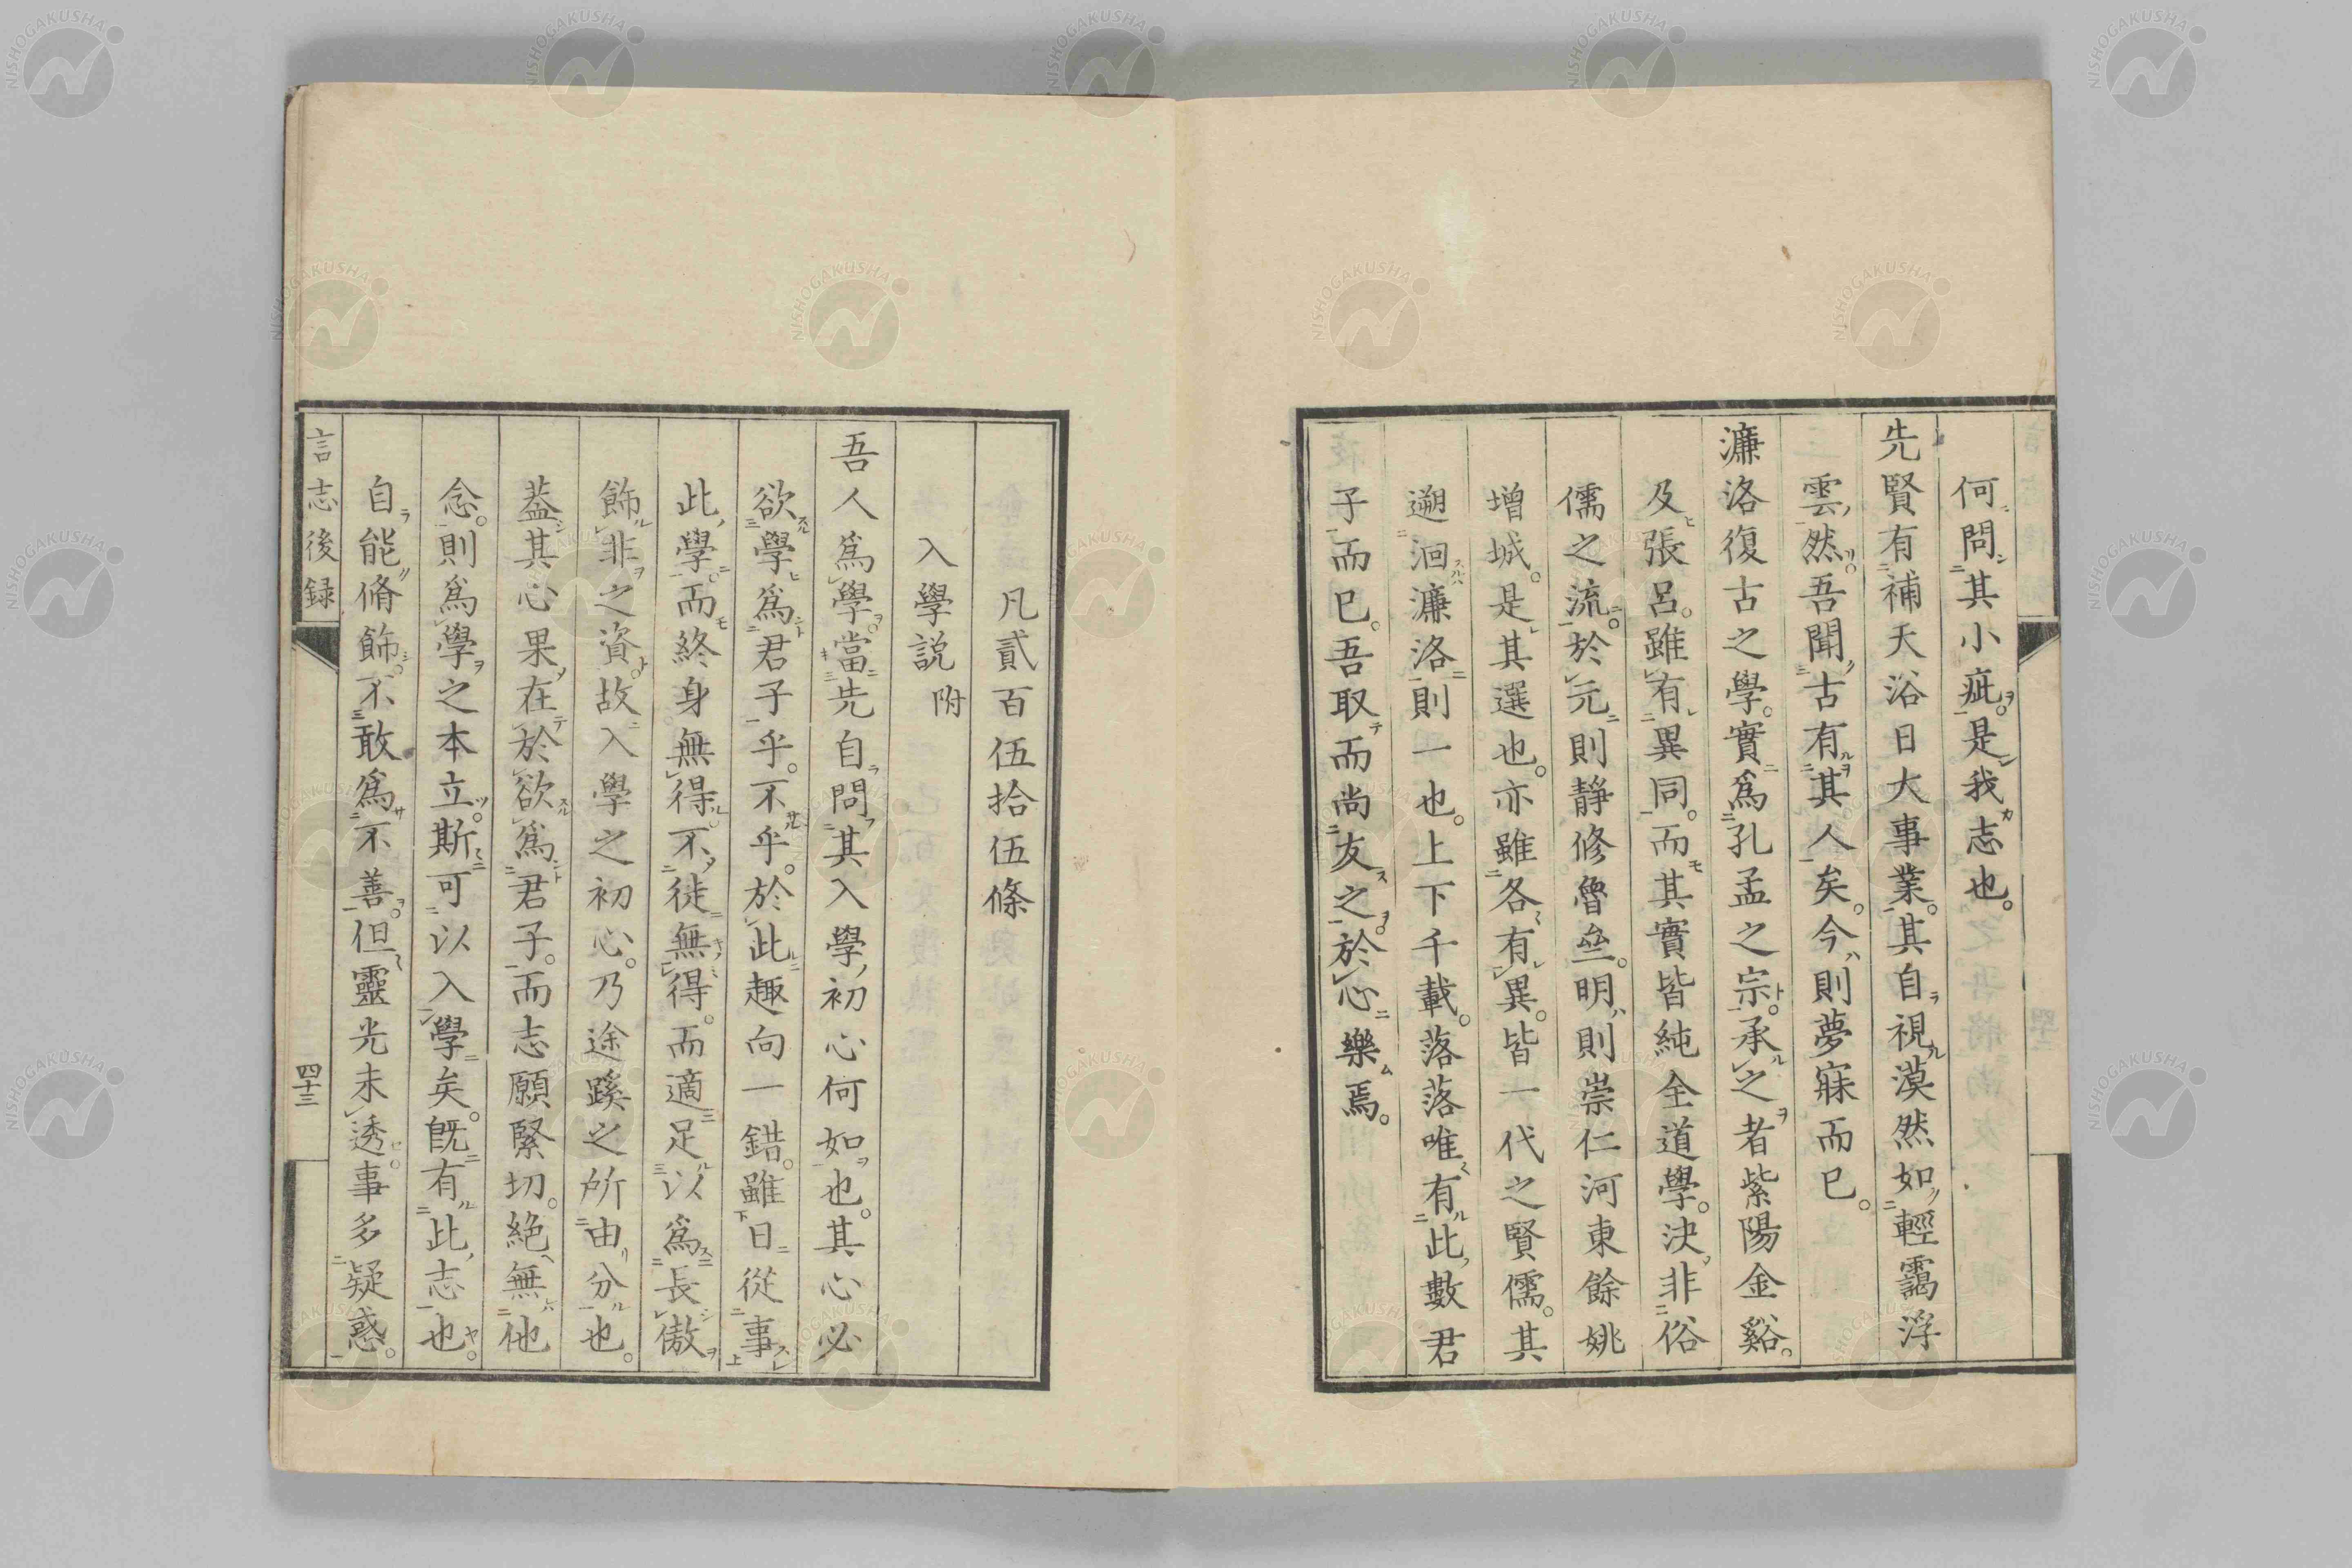 何問其小疵。是我志也。
先賢有補天浴日大事業。其自視漠然如輕靄浮
雲然。吾聞古有其人矣。今則夢寐而已。
濂洛復古之學。實爲孔孟之宗。承之者紫陽金谿。
及張呂。雖有異同。而其實皆純全道學。決非俗
儒之流。於元則静修魯齋。明則崇仁河東餘姚
増城。是其選也。亦雖各有異。皆一代之賢儒。其
遡洄濂洛則一也。上下千載。落落唯有此數君
子而已。吾取而尚友之。於心樂焉。
凡貳百伍拾伍條
入學説 附
吾人爲學。當先自問其入學初心何如也。其心必
欲學爲君子乎。不乎。於此趣向一錯。雖日從事
此學。而終身無得。不徒無得。而適足以爲長傲
飾非之資。故入學之初心。乃途蹊之所由分也。
葢其心果在於欲爲君子。而志願緊切。絶無他
念。則爲學之本立。斯可以入學矣。旣有此志也。
自能脩飾。不敢爲不善。但靈光未透。事多疑惑。
言志後録
四十三
NISHOGAKUSHA